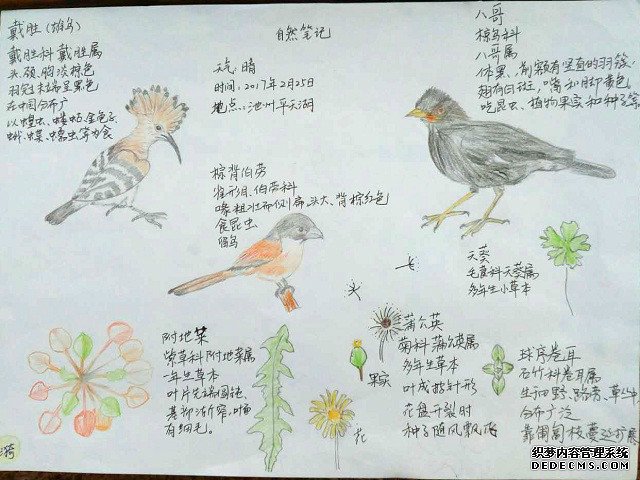 自然笔记
天气：晴
时间：2017年2月25日
地点：池州平天湖
戴胜（雄鸟）
戴胜科 戴胜属
头、颈、胸淡棕色
羽冠末端呈黑色
在中国分布广
以蝗虫、蝼蛄、金龟子、
等为食
八哥
椋鸟科
八哥属
体黑，前额有竖直的羽簇
翅有白斑，嘴和脚黄色
吃昆虫、植物果实和种子等
棕背伯劳
雀形目、伯劳科
喙粗壮而侧扁、头大、背棕红色
食昆虫
留鸟
天葵
毛茛科天葵属
多年生小草本
附地菜
紫草科附地菜属
一年生草本
叶片先端圆钝、
基部渐窄、叶面
有细毛。
蒲公英
菊科蒲公英属
多年生草本
叶成披针形
花盘开裂时
种子随风飘飞
果实
花
球序卷耳
石竹科卷耳属
生田野、路旁、草山坡
分布广泛
靠匍匐枝蔓延扩展
织梦内容管理系统
DEDECMS.COM